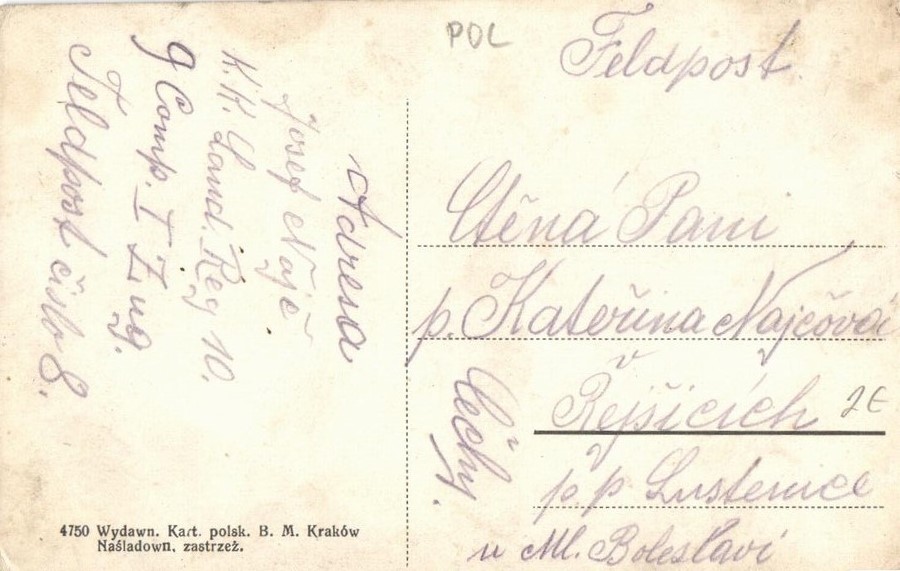 POL
Feldpost
Ctěná Pani
p. Kateřina Najčová
v Řejšicích
2€
p. p Lustenice
u Ml. Boleslavi
Čechy.
Adresa
Josef Najč
K. K. Land. Reg 10.
9 Comp. I Zug.
Feldpost číslo 8.
4750 Wydawn. Kart. polsk. B. M. Kraków
Naśladown. zastrzeż.